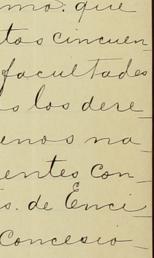 mo. que
tos cincuen
facultades
s los dere
enos na
entes con
s. de Enci
concesio